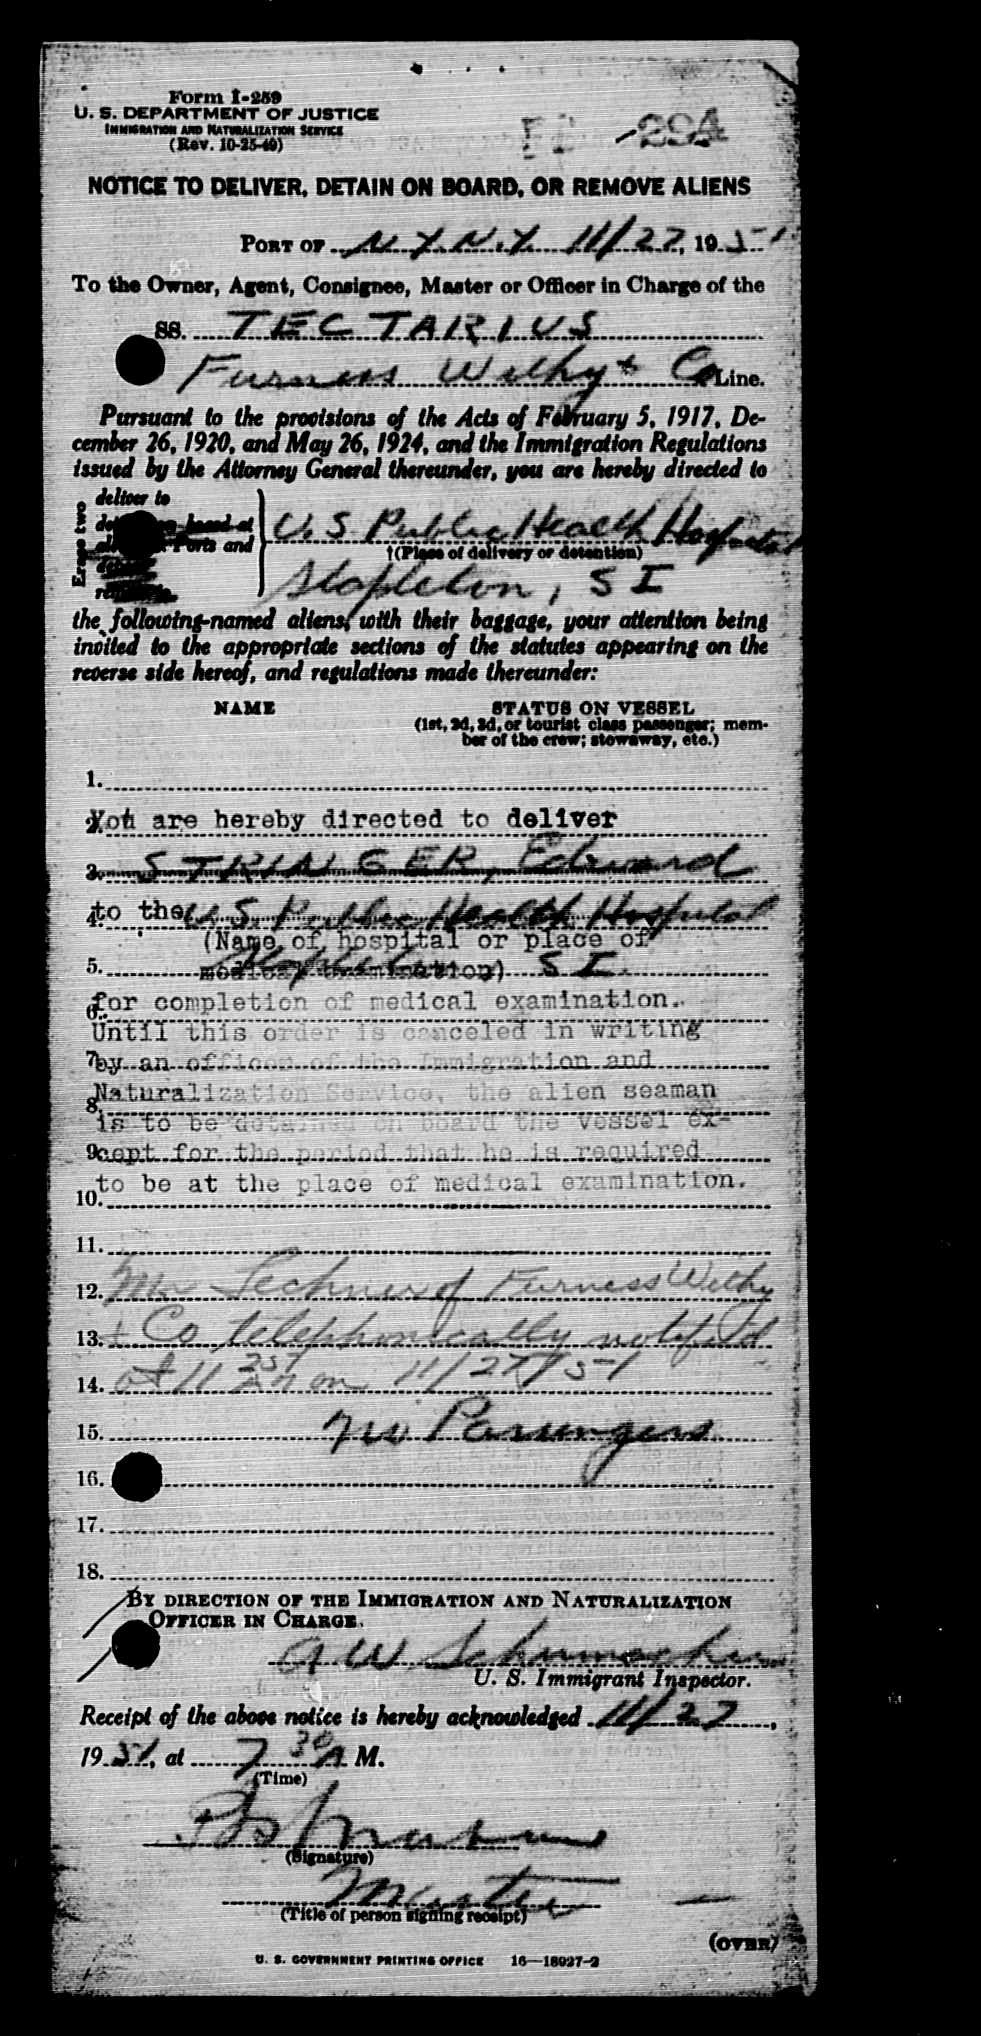 Form I-259
U. S. DEPARTMENT OF JUSTICE
IMMIGRATION AND NATURALIZATION SERVICE
(Rev. 10-25-49)
NOTICE TO DELIVER, DETAIN ON BOARD, OR REMOVE ALIENS
PORT OF N.Y.N.Y. 11/27, 1951
To the Owner, Agent, Consignee, Master or Officer in Charge of the
SS. TECTARIUS
Furness Withy + Co Line.
Pursuant to the provisions of the Acts of February 5, 1917, De-
cember 26, 1920, and May 26, 1924, and the Immigration Regulations
issued by the Attorney General thereunder, you are hereby directed to
Erase two
deliver to
on board at
Ports and
U.S. Public Health Hospital
†(Place of delivery or detention)
Stapleton, S I
the following-named aliens, with their baggage, your attention being
invited to the appropriate sections of the statutes appearing on the
reverse side hereof, and regulations made thereunder:
NAME STATUS ON VESSEL
(1st, 2d, 3d, or tourist class passenger; mem-
ber of the crew; stowaway, etc.)
1.
2. You are hereby directed to deliver
3. STRINGER, Edward
4. to the U.S. Public Health Hospital
(Name of hospital or place of
5. medical examination) Stapleton S I
6. for completion of medical examination.
Until this order is canceled in writing
7. by an officer of the Immigration and
Naturalization Service, the alien seaman
8. is to be detained on board the vessel ex-
9. cept for the period that he is required
to be at the place of medical examination.
10.
11.
12. Mr Lechner of Furness Withy
13. + Co telephonically notified
14. at 11 25 AM on 11/27/51
15. No Passengers
16.
17.
18.
BY DIRECTION OF THE IMMIGRATION AND NATURALIZATION
OFFICER IN CHARGE.
A W Schumacher
U. S. Immigrant Inspector.
Receipt of the above notice is hereby acknowledged 11/27,
1951, at 7 30 A M.
(Time)
(Signature)
Master
(Title of person signing receipt)
(OVER)
U. S. GOVERNMENT PRINTING OFFICE 16—18027-2